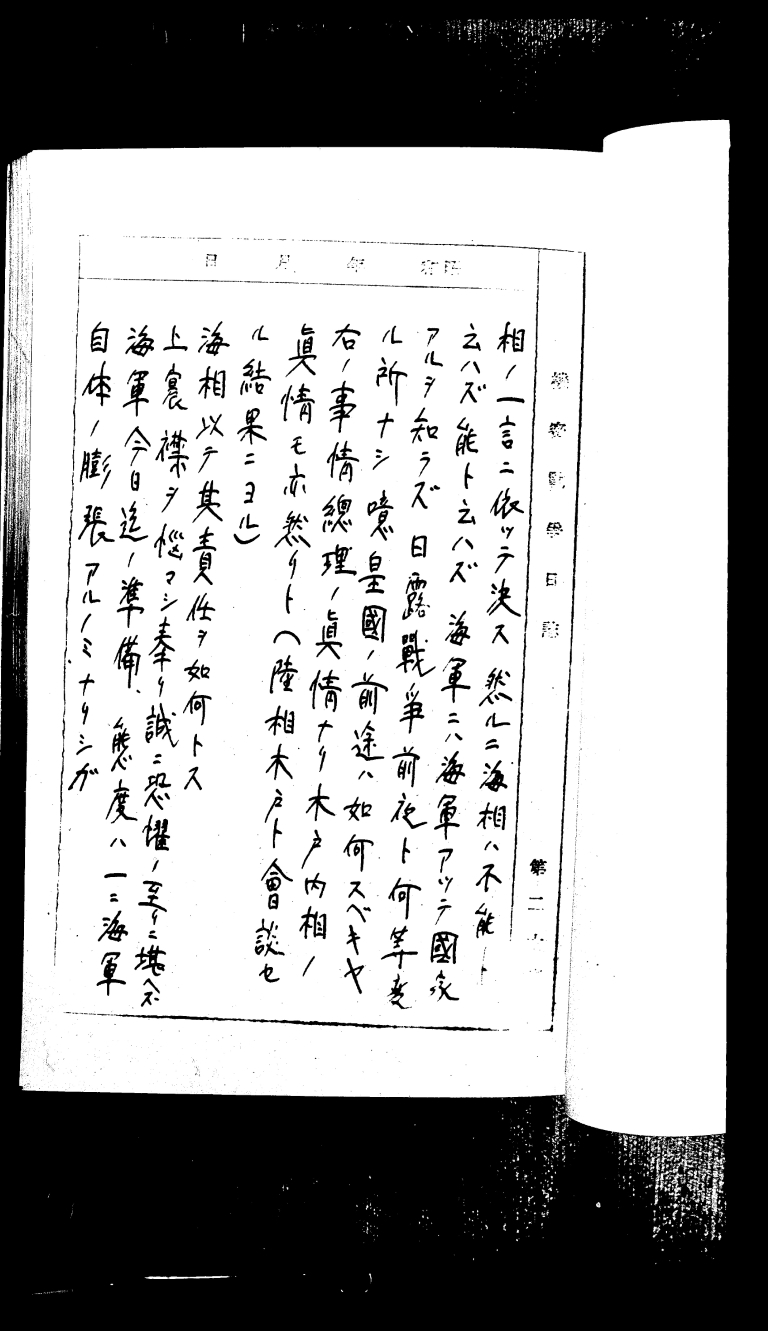 機密戰爭日誌
第二
昭和 年 月 日
相ノ一言ニ依ッテ決ス 然ルニ海相ハ不能ト
云ハズ能ト云ハズ 海軍ニハ海軍アッテ國家
アルヲ知ラズ 日露戰爭前夜ト何等変
ル所ナシ 噫皇國ノ前途ハ如何スベキヤ
右ノ事情總理ノ眞情ナリ木戸内相ノ
眞情モ亦然リト(陸相木戸ト會談セ
ル結果ニヨル)
海相以テ其責任ヲ如何トス
上宸襟ヲ悩マシ奉リ誠ニ恐懼ノ至リニ堪ヘズ
海軍今日迄ノ準備、態度ハ一ニ海軍
自体ノ膨張アルノミナリシガ